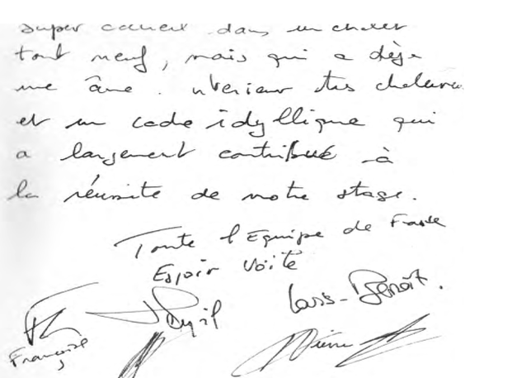 super accueil dans un chalet
tout neuf, mais qui a déjà
une âme. ntérieur très chaleureux
et un cadre idyllique qui
a largement contribué à
la réussite de notre stage.
Toute l'Equipe de France
Espoir Voile
Lars-Benoît.
Françoise
Pierre